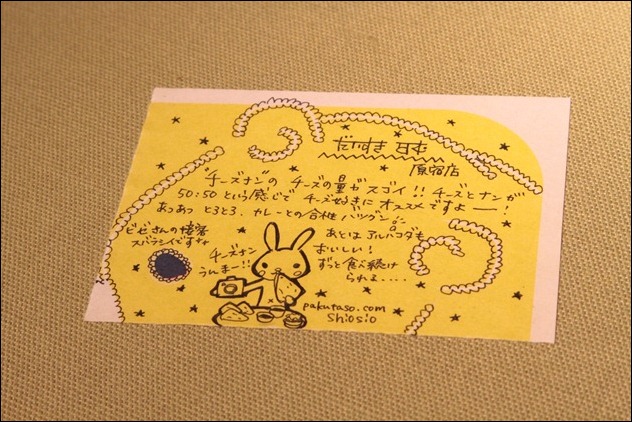 だいすき日む
原宿店
"チーズナン"の チーズの量が スゴイ!! チーズとナンが
50:50 という感じで チーズ好きに オススメですよー!
あつあつ とろとろ、カレーとの合性 バツグン
ビビさんの接客
スバラシイですナァ
チーズナン
うんまー!!
あとは アルパコダも
おいしい!
ずっと食べ続け
られる....
pakutaso.com
shiosio